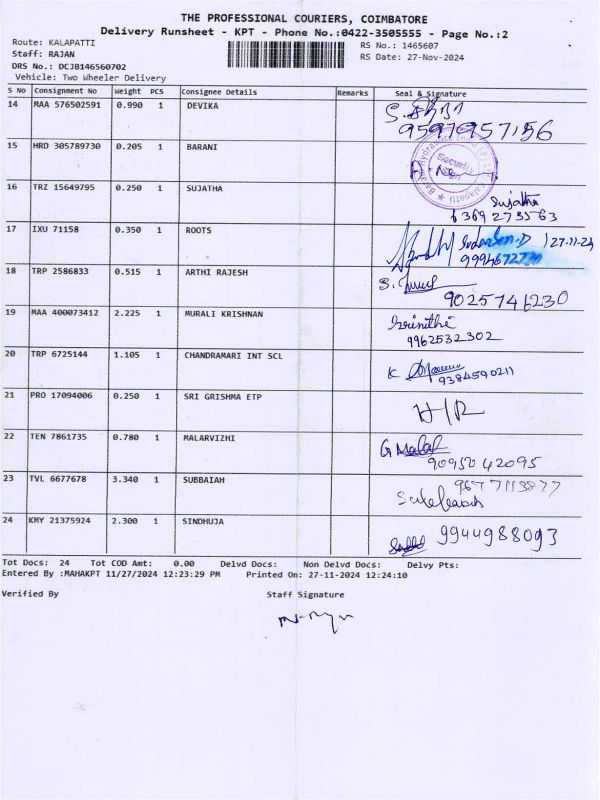 THE PROFESSIONAL COURIERS, COIMBATORE
Delivery Runsheet - KPT - Phone No.:0422-3505555 - Page No.:2
Route: KALAPATTI
RS No.: 1465607
Staff: RAJAN
RS Date: 27-Nov-2024
DRS No.: DCJB146560702
Vehicle: Two Wheeler Delivery
S No Consignment No Weight PCS Consignee Details Remarks Seal & Signature
14 MAA 576502591 0.990 1 DEVIKA
9597957156
15 HRD 305789730 0.205 1 BARANI
Security
16 TRZ 15649795 0.250 1 SUJATHA Sujatha
6369273563
17 IXU 71158 0.350 1 ROOTS 27-11-24
18 TRP 2586833 0.515 1 ARTHI RAJESH
9025746230
19 MAA 400073412 2.225 1 MURALI KRISHNAN Srinithi
9962532302
20 TRP 6725144 1.105 1 CHANDRAMARI INT SCL K
9384590211
21 PRO 17094006 0.250 1 SRI GRISHMA ETP H/R
22 TEN 7861735 0.780 1 MALARVIZHI G Malar
9095042095
23 TVL 6677678 3.340 1 SUBBAIAH
24 KMY 21375924 2.300 1 SINDHUJA 9944988093
Tot Docs: 24 Tot COD Amt: 0.00 Delvd Docs: Non Delvd Docs: Delvy Pts:
Entered By :MAHAKPT 11/27/2024 12:23:29 PM Printed On: 27-11-2024 12:24:10
Verified By Staff Signature